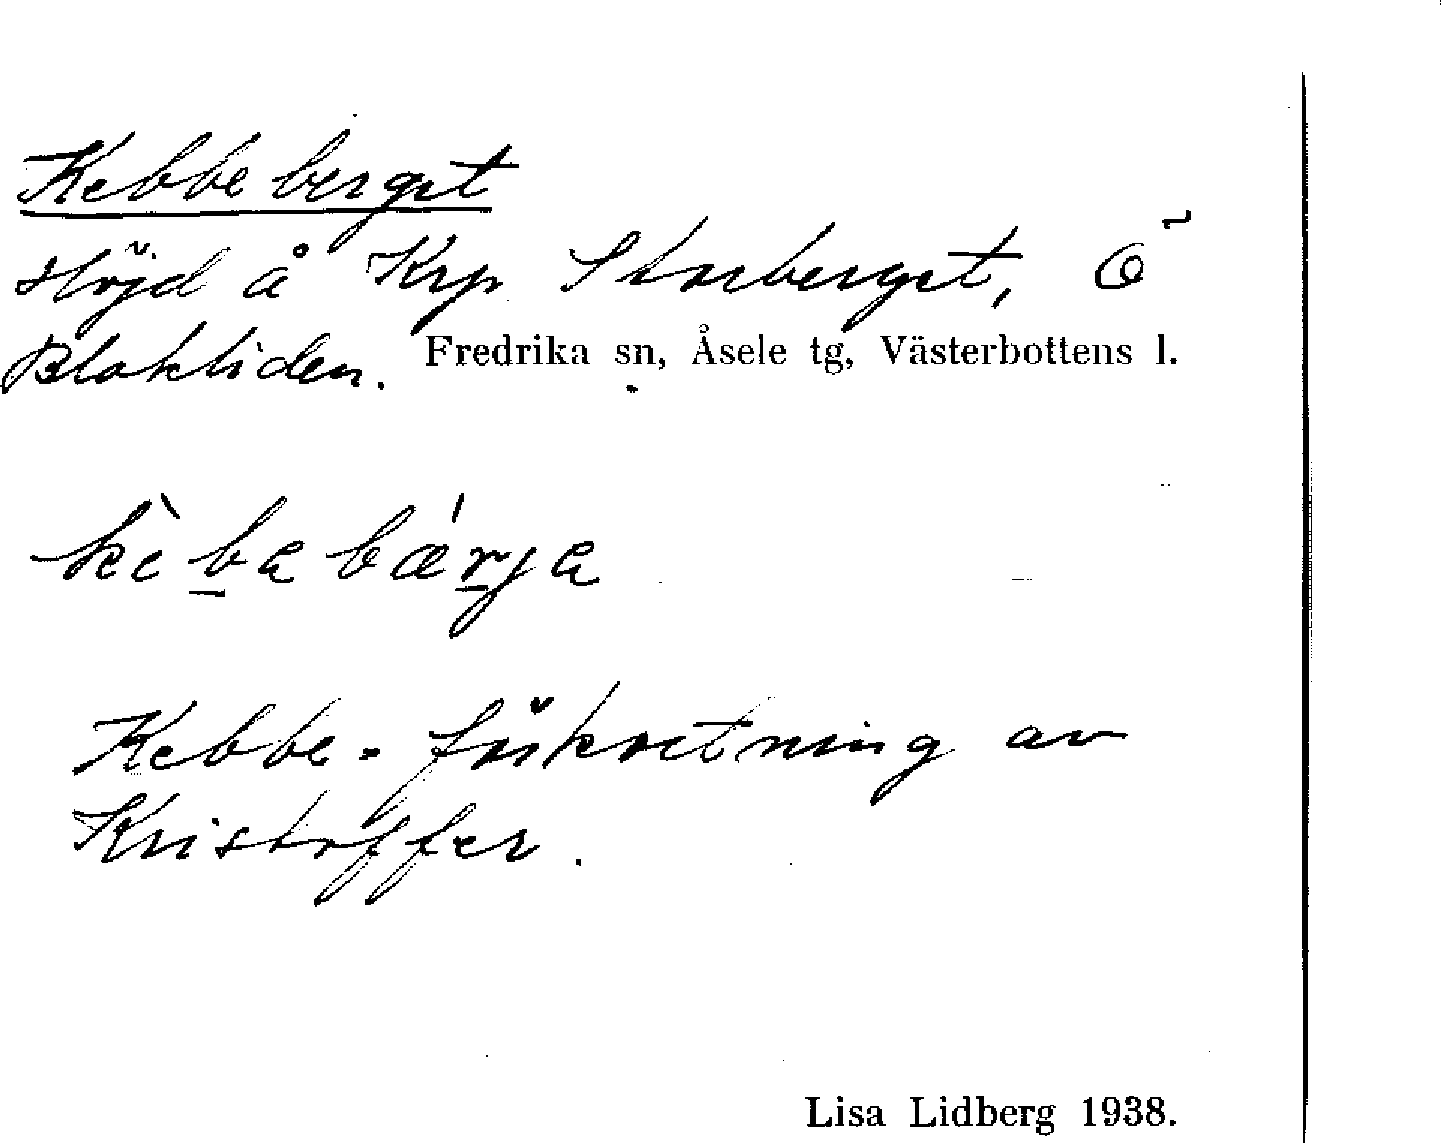 Kebbeberget
Höjd å Krp Storberget, Ö
Blakliden. Fredrika sn, Åsele tg, Västerbottens l.
kèbabǽrja
Kebbe = förkortning av
Kristoffer.
Lisa Lidberg 1938.